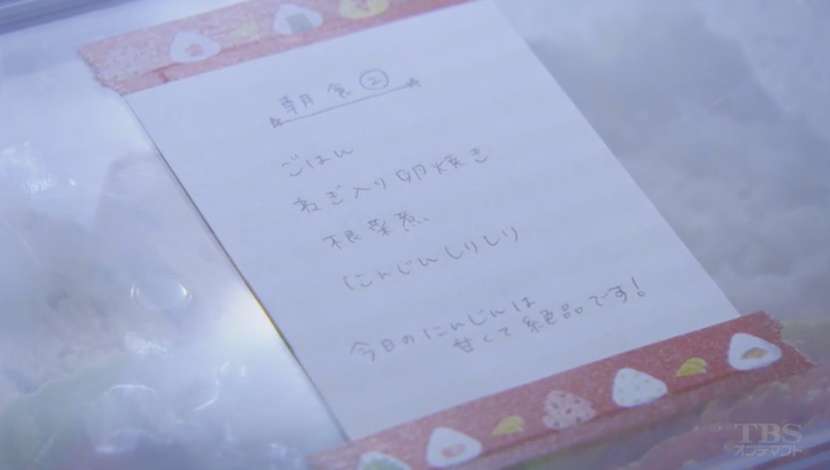 朝食②
ごはん
ねぎ入り卵焼き
根菜煮、
にんじんしりしり
今日のにんじんは
甘くて絶品です!
TBS
オンデマンド